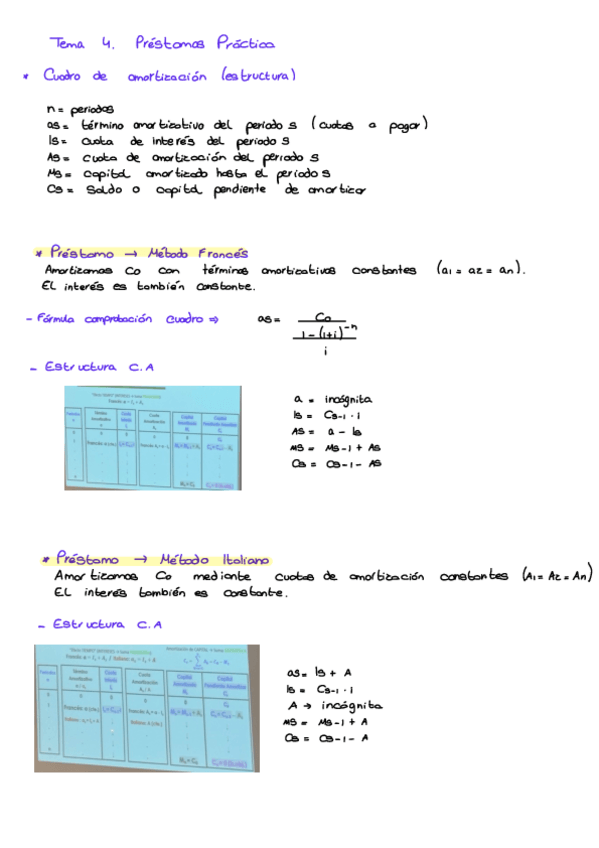 Tema 4. Préstamos Práctica
* Cuadro de amortización (estructura)
n = periodos
as = término amortizativo del periodo s (cuotas a pagar)
Is = cuota de interés del periodo s
As = cuota de amortización del periodo s
Ms = capital amortizado hasta el periodo s
Cs = Saldo o capital pendiente de amortizar
* Préstamo → Método Francés
Amortizamos Co con términos amortizativos constantes (a1 = a2 = an).
EL interés es también constante.
- Fórmula comprobación cuadro ⇒ as = Co
1 - (1+i)^-n
i
- Estructura C.A
a = incógnita
Is = Cs-1 · i
As = a - Is
Ms = Ms-1 + As
Cs = Cs-1 - As
* Préstamo → Método Italiano
Amortizamos Co mediante cuotas de amortización constantes (A1 = A2 = An)
EL interés también es constante.
- Estructura C.A
as = Is + A
Is = Cs-1 · i
A → incógnita
Ms = Ms-1 + A
Cs = Cs-1 - A